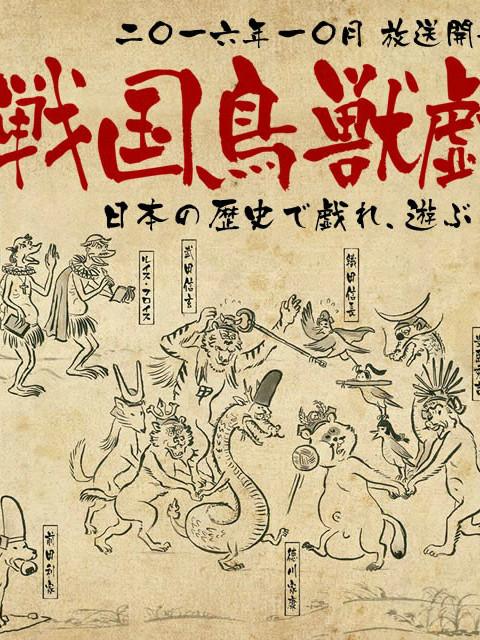 二〇一六年一〇月 放送開
戦国鳥獣戯
日本の歴史で戯れ、遊ぶ
ルイス・フロイス
武田信玄
織田信長
前田利家
徳川家康